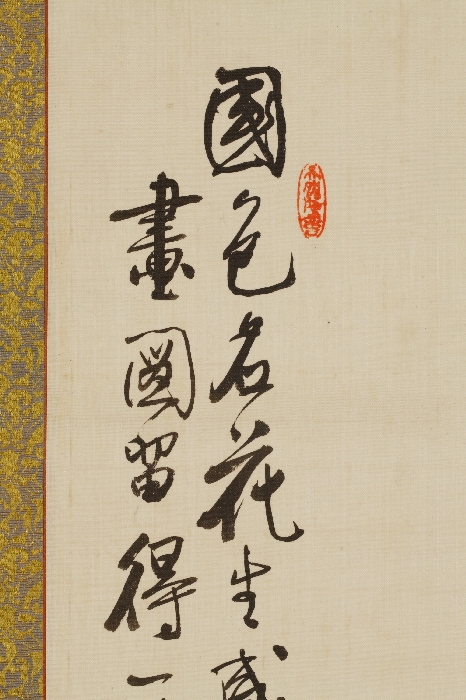 國色名花生感
畫圖留得一